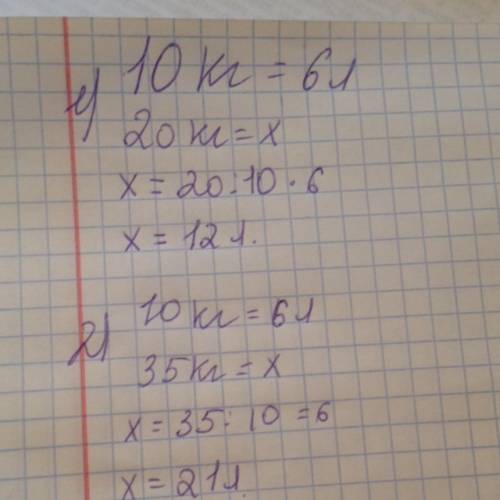 1) 10 кг = 6 л
20 кг = x
x = 20 : 10 · 6
x = 12 л.
2) 10 кг = 6 л
35 кг = x
x = 35 : 10 = 6
x = 21 л.